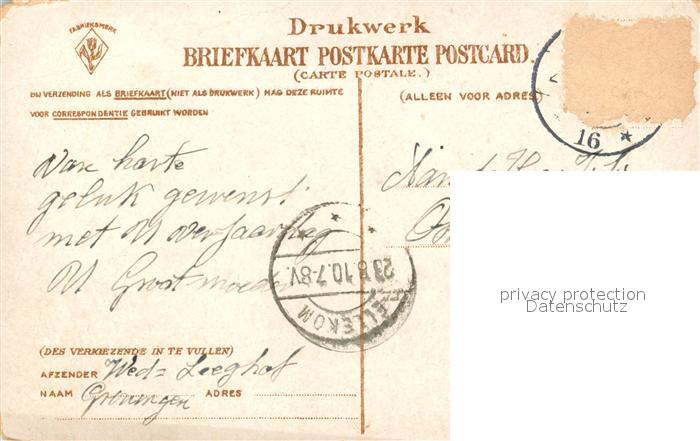 FABRIEKSMERK
Drukwerk
BRIEFKAART POSTKARTE POSTCARD.
(CARTE POSTALE.)
BIJ VERZENDING ALS BRIEFKAART (NIET ALS DRUKWERK) MAG DEZE RUIMTE
VOOR CORRESPONDENTIE GEBRUIKT WORDEN
(ALLEEN VOOR ADRES)
16
Van harte
geluk gewenst
met U verjaardag
U Grootmoeder
23.8.10.7-8V.
ELLEKOM
privacy protection
Datenschutz
(DES VERKIEZENDE IN TE VULLEN)
AFZENDER Wed= Leeghof
NAAM Groningen ADRES